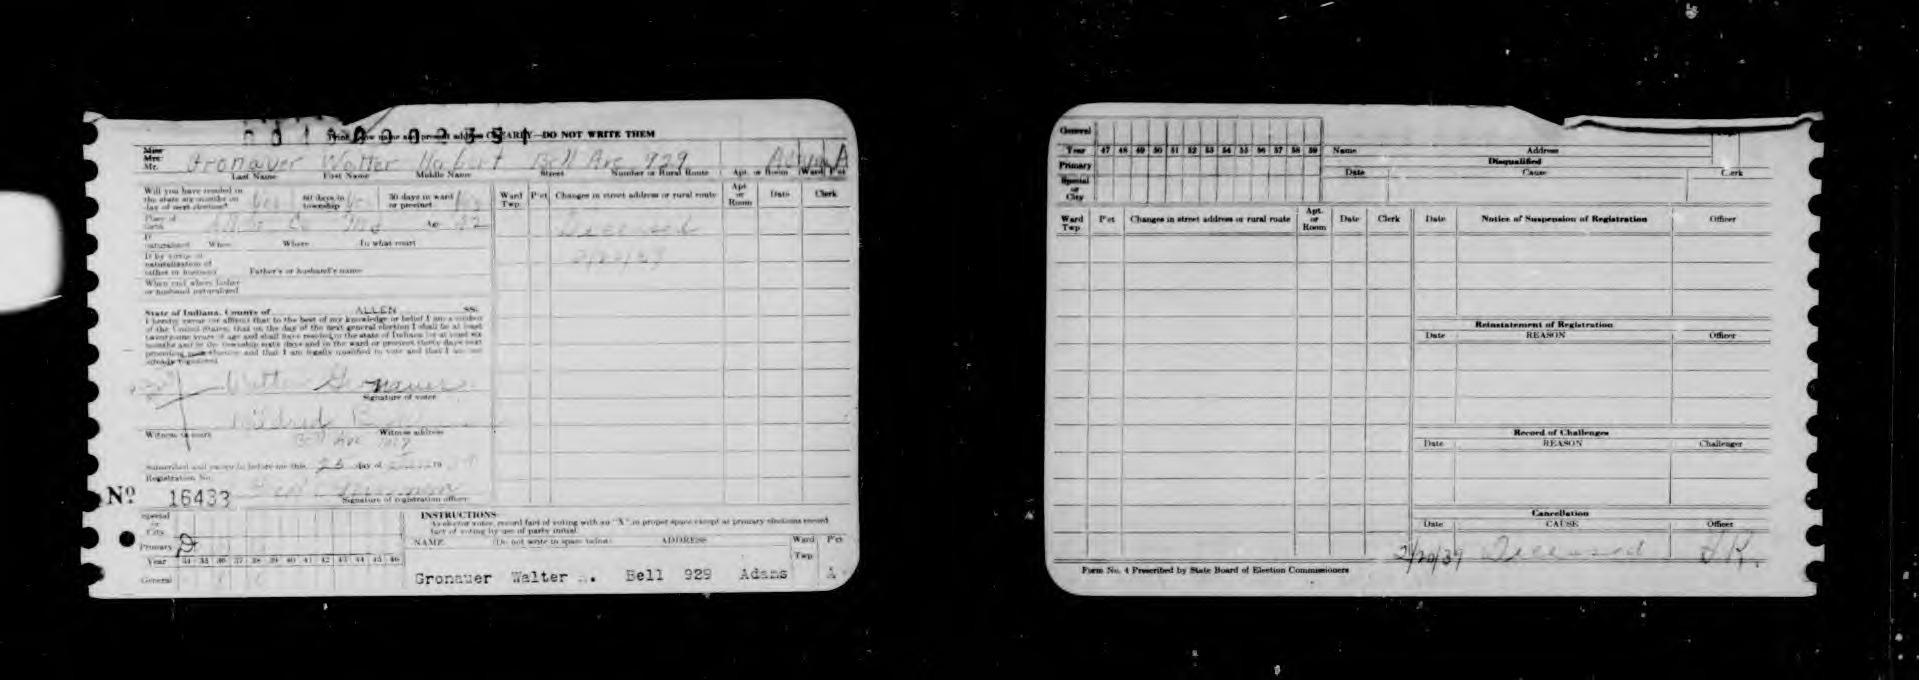 CLEARLY—DO NOT WRITE THEM
Miss
Mrs.
Mr. Gronauer Walter Bell Ave. 929 A
Last Name First Name Middle Name Street Number or Rural Route Apt. or Room Ward P'ct
Will you have resided in
the state six months on
day of next election? Yes
60 days in
township Yes
30 days in ward
or precinct Yes
Place of
birth Allen Co. Ind Age 32
If
naturalized When Where In what court
If by virtue of
naturalization of
father or husband Father's or husband's name
When and where father
or husband naturalized
State of Indiana, County of ALLEN SS:
I hereby swear (or affirm) that to the best of my knowledge or belief I am a
of the United States, that on the day of the next general election I shall be at least
twenty-one years of age and shall have resided in the state of Indiana for at least six
months and in the township sixty days and in the ward or precinct thirty days next
preceding such election and that I am legally qualified to vote and that I am not
already registered.
Walter Gronauer
Signature of voter
Mildred
Witness Witness address
Bell Ave
Subscribed and sworn to before me this day of 19
Registration No.
Signature of registration officer
No 16433
Ward
Twp P'ct Changes in street address or rural route Apt.
or
Room Date Clerk
Deceased
2/20/39
Special
or
City
Primary D
Year 34 35 36 37 38 39 40 41 42 43 44 45 46
General
INSTRUCTIONS
As elector votes, record fact of voting with an "X" in proper space except at primary elections record
fact of voting by use of party initial.
NAME (Do not write in space below) ADDRESS Ward P'ct
Twp
Gronauer Walter Bell 929 Adams A
General
Year 47 48 49 50 51 52 53 54 55 56 57 58 59
Primary
Special
or
City
Name Address
Disqualified
Date Cause Clerk
Ward
Twp P'ct Changes in street address or rural route Apt.
or
Room Date Clerk
Date Notice of Suspension of Registration Officer
Reinstatement of Registration
Date REASON Officer
Record of Challenges
Date REASON Challenger
Cancellation
Date CAUSE Officer
2/20/39 Deceased
Form No. 4 Prescribed by State Board of Election Commissioners